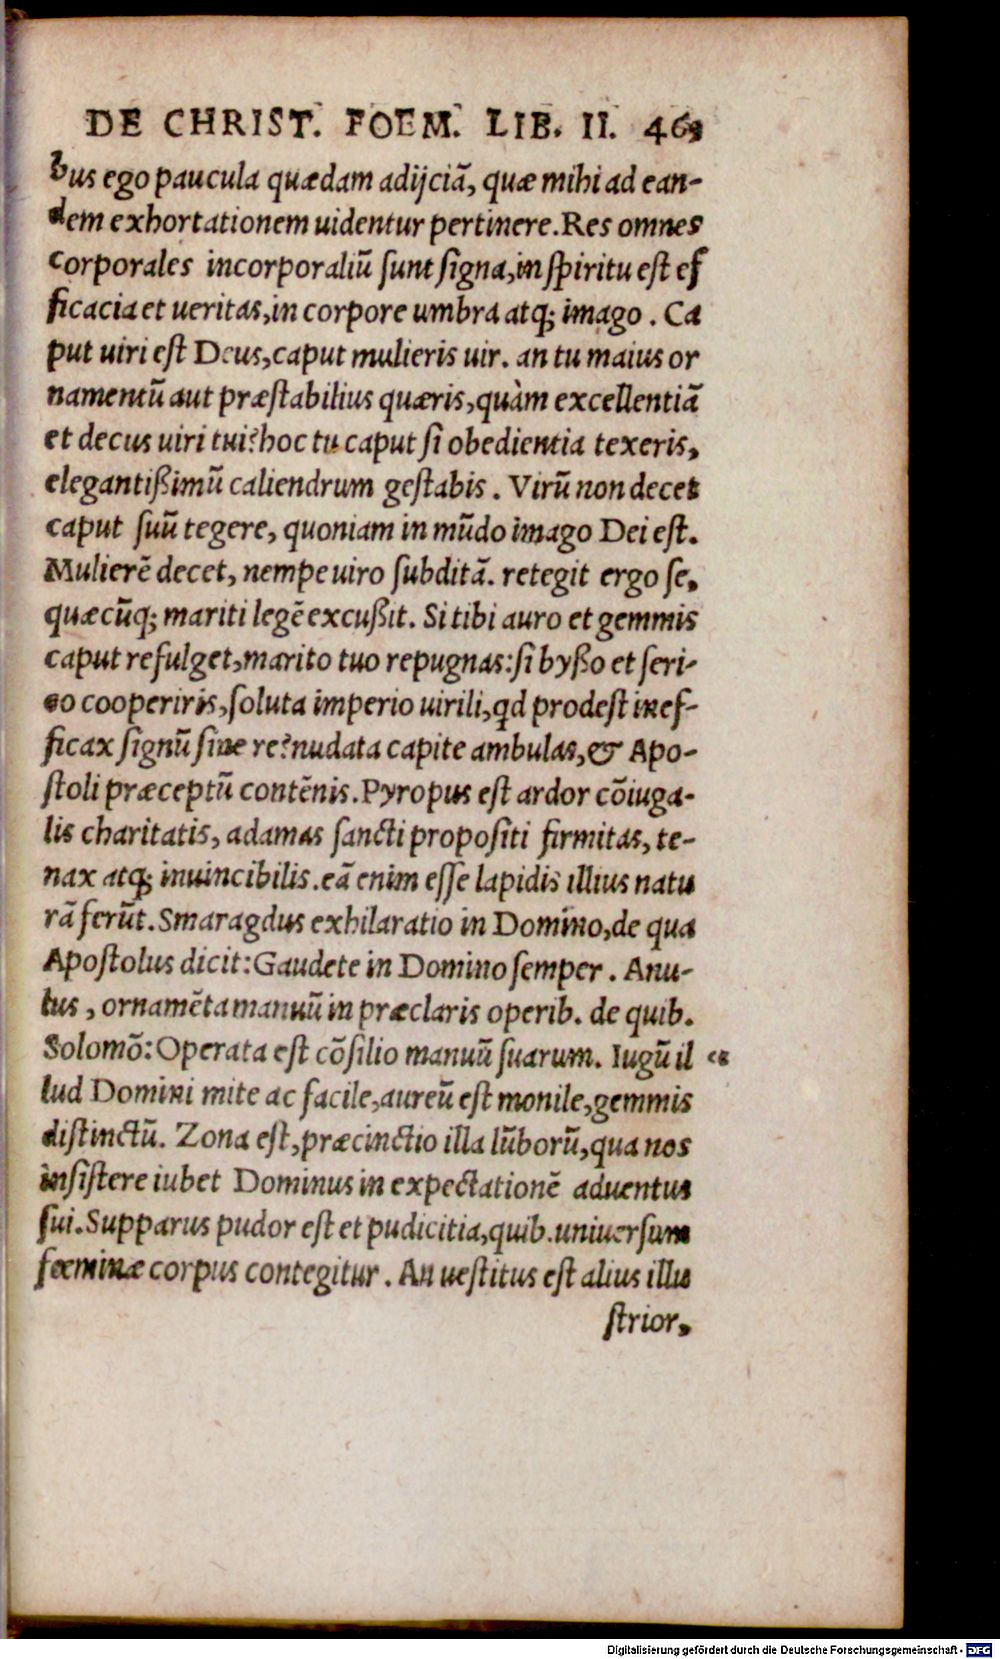 DE CHRIST. FOEM. LIB. II. 463
bus ego paucula quædam adijciā, quæ mihi ad ean-
dem exhortationem uidentur pertinere. Res omnes
corporales incorporaliū sunt signa, in spiritu est ef
ficacia et ueritas, in corpore umbra atq; imago. Ca
put uiri est Deus, caput mulieris uir. an tu maius or
namentū aut præstabilius quæris, quàm excellentiā
et decus uiri tui? hoc tu caput si obedientia texeris,
elegantißimū caliendrum gestabis. Virū non decet
caput suū tegere, quoniam in mūdo imago Dei est.
Mulierē decet, nempe uiro subditā. retegit ergo se,
quæcūq; mariti legē excußit. Si tibi auro et gemmis
caput refulget, marito tuo repugnas: si byßo et seri-
co cooperiris, soluta imperio uirili, qd prodest inef-
ficax signū sine re? nudata capite ambulas, & Apo-
stoli præceptū contēnis. Pyropus est ardor cōiuga-
lis charitatis, adamas sancti propositi firmitas, te-
nax atq; inuincibilis. eā enim esse lapidis illius natu
rā ferūt. Smaragdus exhilaratio in Domino, de qua
Apostolus dicit: Gaudete in Domino semper. Anu-
lus, ornamēta manuū in præclaris operib. de quib.
Solomō: Operata est cōsilio manuū suarum. Iugū il
lud Domini mite ac facile, aureū est monile, gemmis
distinctū. Zona est, præcinctio illa lūborū, qua nos
insistere iubet Dominus in expectationē aduentus
sui. Supparus pudor est et pudicitia, quib. uniuersum
fœminæ corpus contegitur. An uestitus est alius illu
strior,
Digitalisierung gefördert durch die Deutsche Forschungsgemeinschaft - DFG